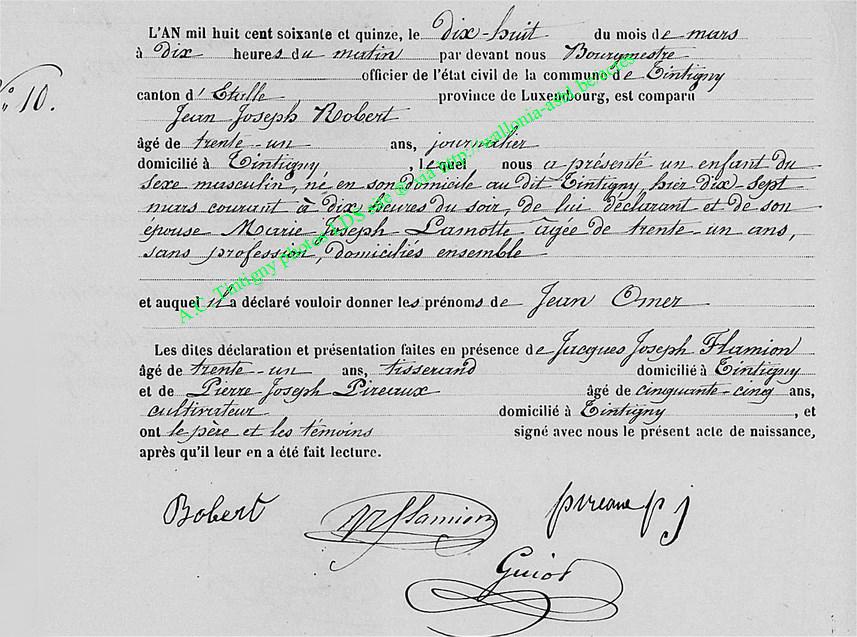 N° 10.
L'AN mil huit cent soixante et quinze, le dix-huit du mois de mars
à dix heures du matin par devant nous Bourgmestre
officier de l'état civil de la commune de Tintigny
canton d'Etalle province de Luxembourg, est comparu
Jean Joseph Robert
âgé de trente-un ans, journalier
domicilié à Tintigny, lequel nous a présenté un enfant du
sexe masculin, né en son domicile au dit Tintigny, hier dix-sept
mars courant à dix heures du soir, de lui déclarant et de son
épouse Marie Joseph Lamotte agée de trente-un ans,
sans profession, domiciliés ensemble
et auquel il a déclaré vouloir donner les prénoms de Jean Omer
Les dites déclaration et présentation faites en présence de Jacques Joseph Flamion
âgé de trente-un ans, tisserand domicilié à Tintigny
et de Pierre Joseph Pireaux âgé de cinquante-cinq ans,
cultivateur domicilié à Tintigny, et
ont le père et les témoins signé avec nous le présent acte de naissance,
après qu'il leur en a été fait lecture.
Robert Flamion pireaux p j
Guiot
A.C. Tintigny photos LDS site @via http://wallonia-asbl.be/actes